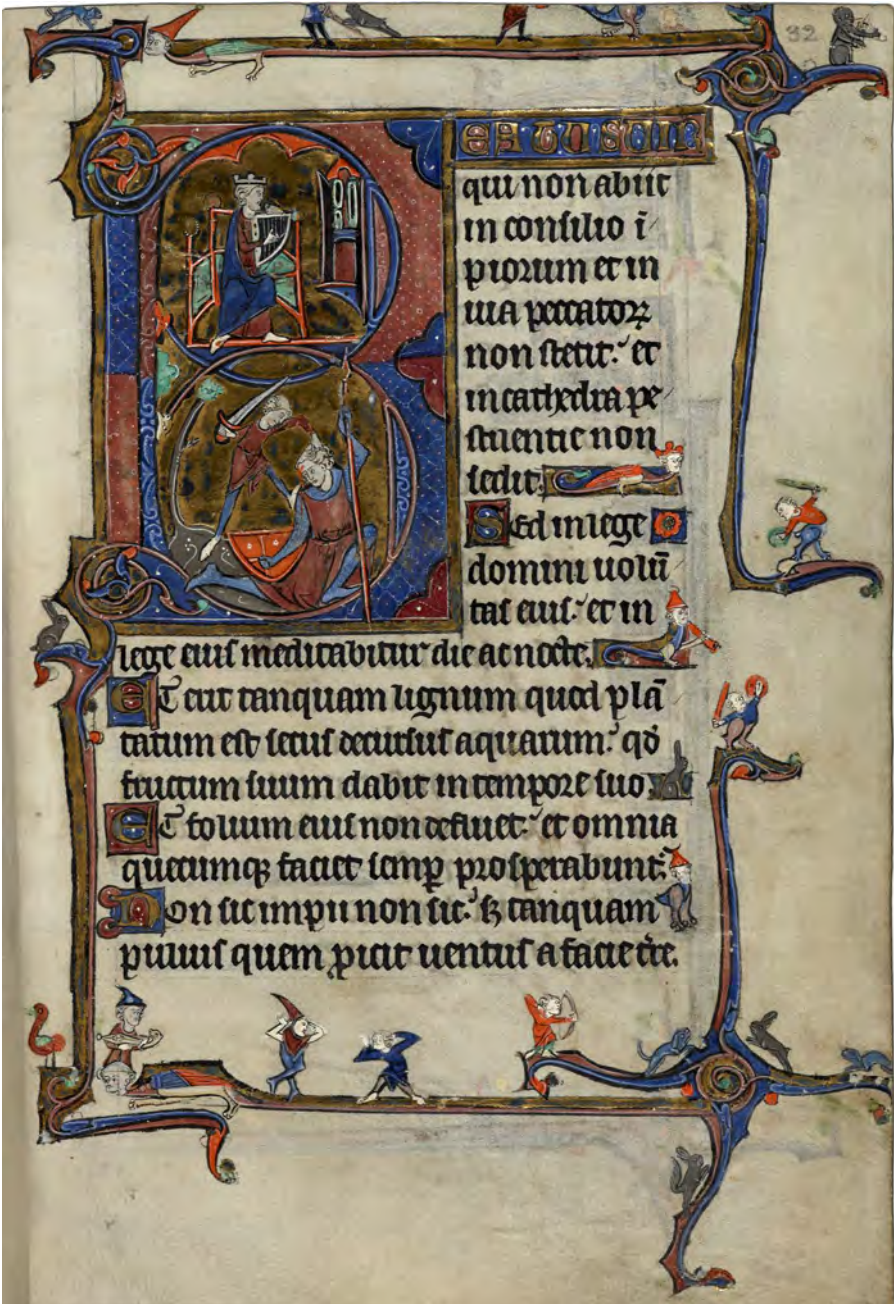 32
BEATUS UIR
qui non abiit
in consilio ī
piorum et in
uia peccatoꝝ
non stetit. et
in cathedra pe
stilentie non
sedit.
Sed in lege
domini uolū
tas eius. et in
lege eius meditabitur die ac nocte.
ET erit tanquam lignum quod plā
tatum est secus decursus aquarum. qͦd
fructum suum dabit in tempore suo
ET folium eius non defluet. et omnia
quecumqꝫ faciet semꝑ prosperabunt.
Non sic impii non sic. sꝫ tanquam
puluis quem ꝓicit uentus a facie tr̄e.